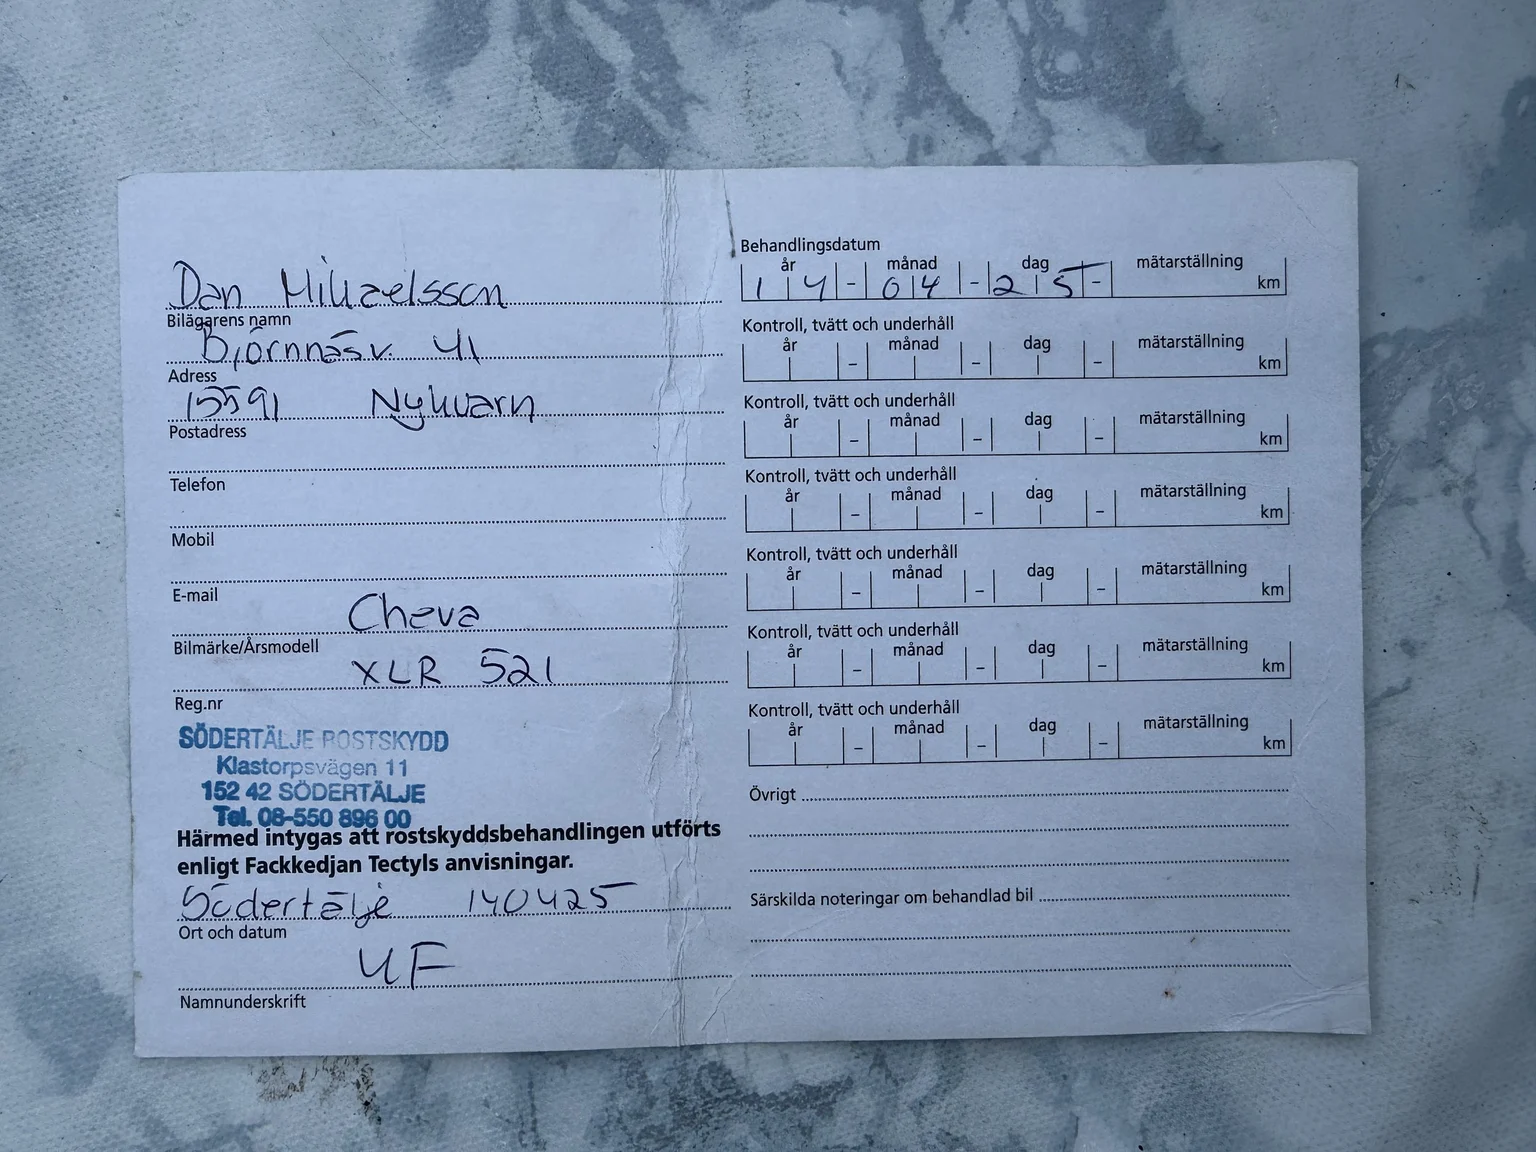 Dan Mikaelsson
Bilägarens namn
Björnnäsv. 41
Adress
15591 Nykvarn
Postadress
Telefon
Mobil
E-mail
Cheva
Bilmärke/Årsmodell
XLR 521
Reg.nr
SÖDERTÄLJE ROSTSKYDD
Klastorpsvägen 11
152 42 SÖDERTÄLJE
Tel. 08-550 896 00
Härmed intygas att rostskyddsbehandlingen utförts
enligt Fackkedjan Tectyls anvisningar.
Södertälje 140425
Ort och datum
UF
Namnunderskrift
Behandlingsdatum
år månad dag mätarställning
14 - 04 - 25 - km
Kontroll, tvätt och underhåll
år månad dag mätarställning
- - - km
Kontroll, tvätt och underhåll
år månad dag mätarställning
- - - km
Kontroll, tvätt och underhåll
år månad dag mätarställning
- - - km
Kontroll, tvätt och underhåll
år månad dag mätarställning
- - - km
Kontroll, tvätt och underhåll
år månad dag mätarställning
- - - km
Kontroll, tvätt och underhåll
år månad dag mätarställning
- - - km
Övrigt
Särskilda noteringar om behandlad bil